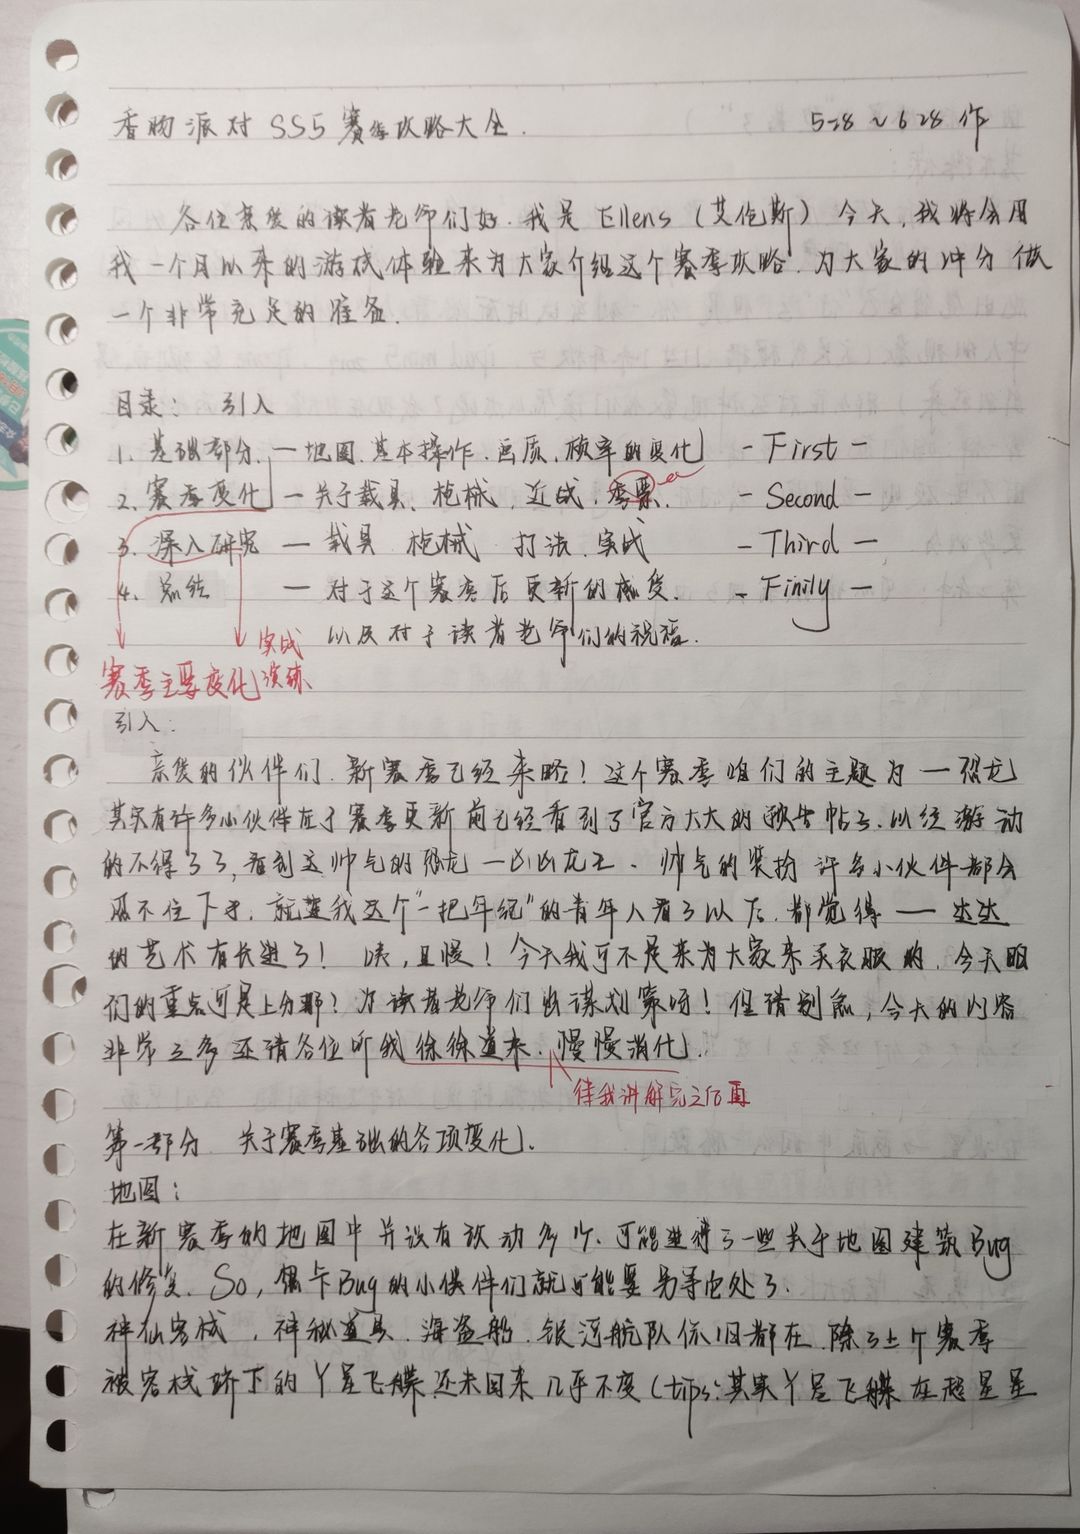 香肠派对 SS5 赛季攻略大全. 528~628 作
各位亲爱的读者老师们好.我是 Ellens (艾伦斯) 今天,我将会用
我一个月以来的游戏体验来为大家介绍这个赛季攻略.为大家的冲分做
一个非常充足的准备.
目录: 引入
1. 基础部分. — 地图.基本操作.画质.桢率的变化 - First -
2. 赛季变化 — 关于载具、枪械、近战. - Second -
3. 深入研究 — 载具 枪械 打法.实战 - Third -
4. 总结 — 对于这个赛季后更新的感受. - Finily -
以及对于读者老师们的祝福.
实战
赛季主要变化 演练
引入:
亲爱的伙伴们.新赛季已经来临!这个赛季咱们的主题为—恐龙
其实有许多小伙伴在于赛季更新前已经看到了官方大大的预告帖了.以经激动
的不得了了,看到这帅气的恐龙—凶凶龙王、帅气的装扮 许多小伙伴都会
忍不住下手.就连我这个"一把年纪"的青年人看了以后.都觉得——达达
的艺术有长进了! 咦,且慢!今天我可不是来为大家来买衣服的.今天咱
们的重点可是上分那?为读者老师们出谋划策呀!但请别急,今天的内容
非常之多还请各位听我徐徐道来.慢慢消化.
待我讲解完之后再
第一部分 关于赛季基础的各项变化.
地图:
在新赛季的地图中并没有改动多少.可能进行了一些关于地图建筑Bug
的修复. So,偶卡Bug的小伙伴们就可能要另寻出处了.
神仙客栈,神秘道具.海盗船.银河航队依旧都在.除了上个赛季
被客栈挤下的丫星飞艥还未回来几乎不变(tips:其实丫星飞艥在超星星